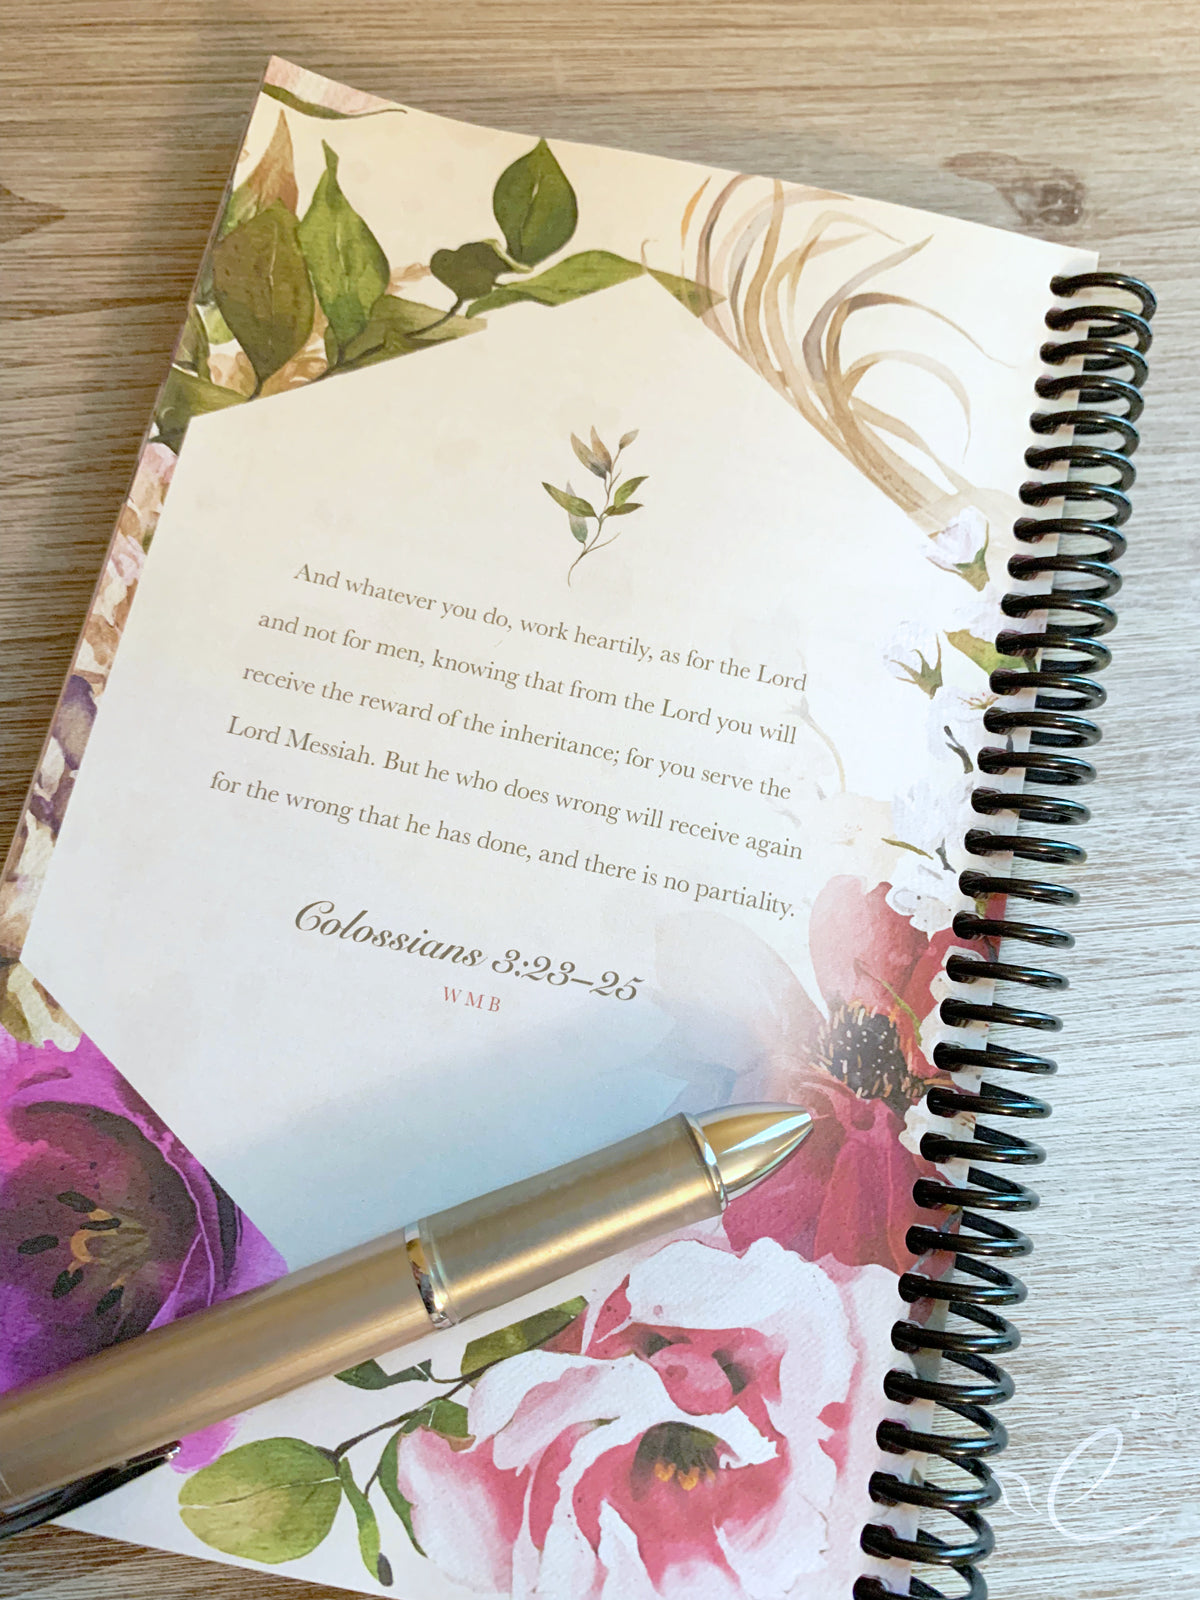 And whatever you do, work heartily, as for the Lord
and not for men, knowing that from the Lord you will
receive the reward of the inheritance; for you serve the
Lord Messiah. But he who does wrong will receive again
for the wrong that he has done, and there is no partiality.
Colossians 3:23–25
WMB